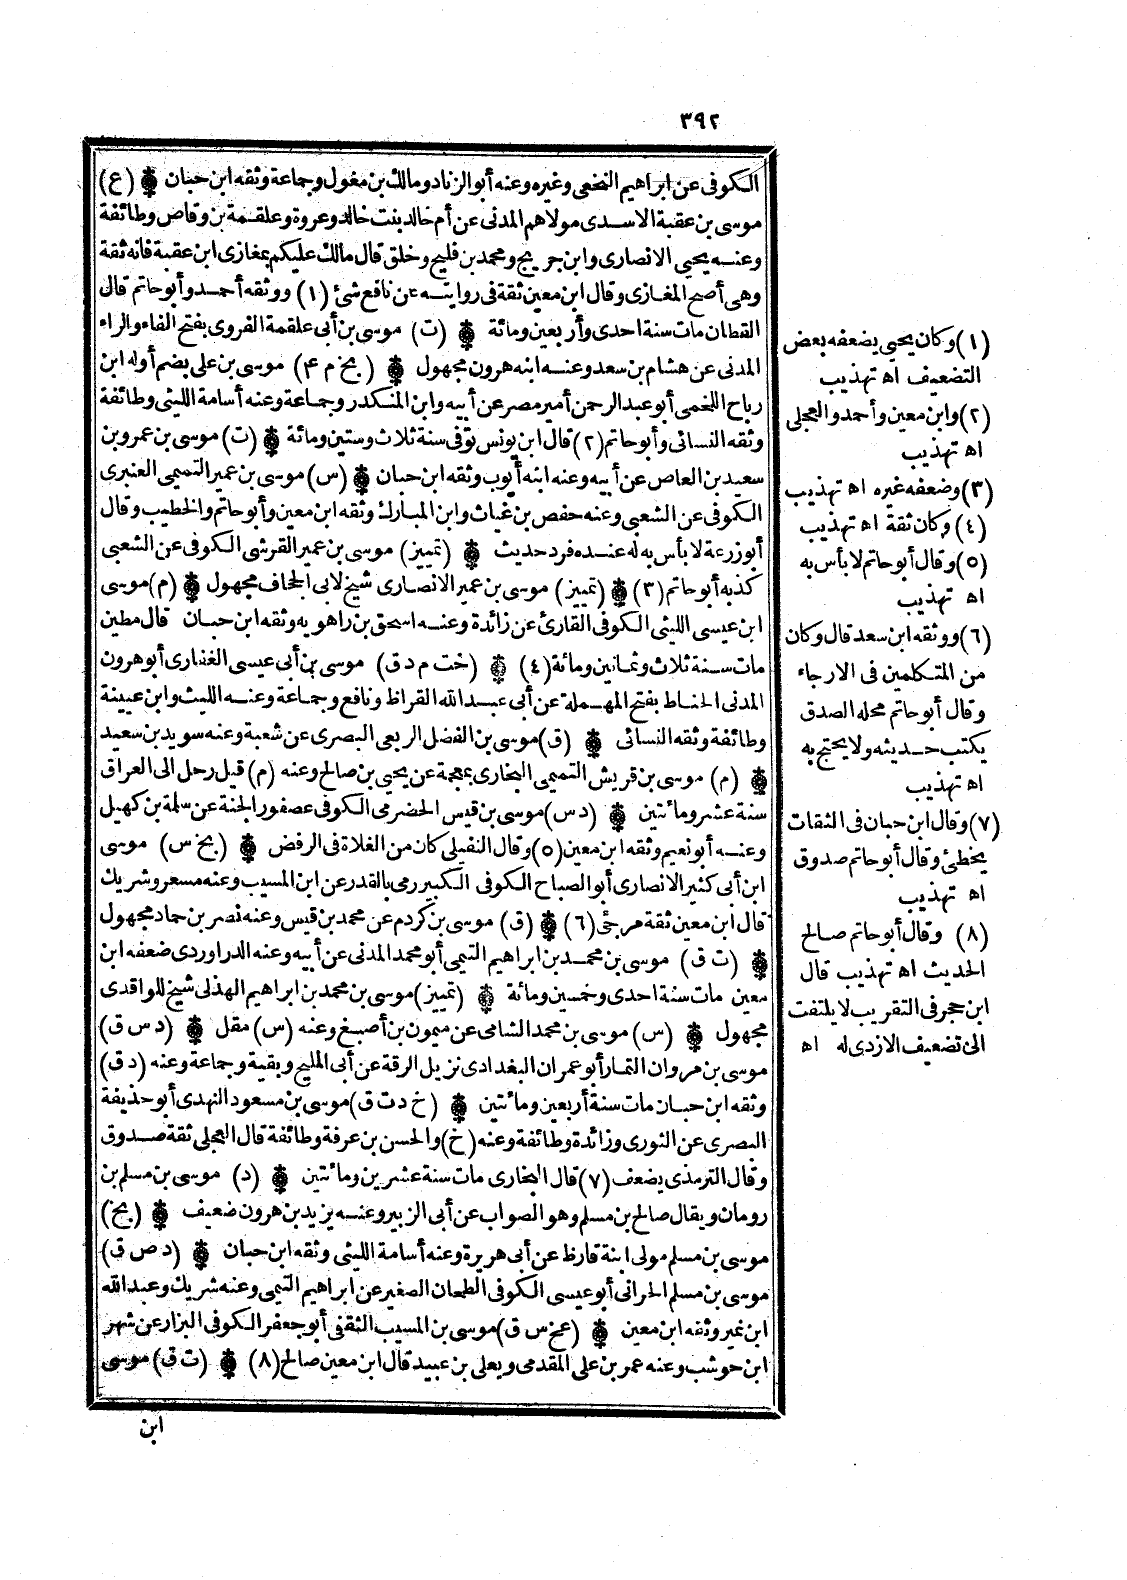 ٣٩٢
الكوفى عن ابراهيم النخعى وغيره وعنه أبو الزناد ومالك بن مغول وجماعة وثقه ابن حبان (ع)
موسى بن عقبة الاسدى مولاهم المدنى عن أم خالد بنت خالد وعروة وعلقمة بن وقاص وطائفة
وعنه يحيى الانصارى وابن جريج ومحمد بن فليح وخلق قال مالك عليكم بمغازى ابن عقبة فانه ثقة
وهى أصح المغازى وقال ابن معين ثقة فى روايته عن نافع شئ (١) ووثقه أحمد وأبو حاتم قال
القطان مات سنة احدى وأربعين ومائة (ت) موسى بن أبى علقمة الفروى بفتح الفاء والراء
المدنى عن هشام بن سعد وعنه ابنه هرون مجهول (بخ م ٤) موسى بن على بضم أوله ابن
رباح اللخمى أبو عبد الرحمن أمير مصر عن أبيه وابن المنكدر وجماعة وعنه أسامة الليثى وطائفة
وثقه النسائى وأبو حاتم (٢) قال ابن يونس توفى سنة ثلاث وستين ومائة (ت) موسى بن عمرو بن
سعيد بن العاص عن أبيه وعنه ابنه أيوب وثقه ابن حبان (س) موسى بن عمير التميمى العنبرى
الكوفى عن الشعبى وعنه حفص بن غياث وابن المبارك وثقه ابن معين وأبو حاتم والخطيب وقال
أبو زرعة لا بأس به له عنده فرد حديث (تمييز) موسى بن عمير القرشى الكوفى عن الشعبى
كذبه أبو حاتم (٣) (تمييز) موسى بن عمير الانصارى شيخ لابى الجحاف مجهول (م) موسى
ابن عيسى الليثى الكوفى القارئ عن زائدة وعنه اسحق بن راهويه وثقه ابن حبان قال مطين
مات سنة ثلاث وثمانين ومائة (٤) (خت م د ق) موسى بن أبى عيسى الغفارى أبو هرون
المدنى الحناط بفتح المهملة عن أبى عبد الله القراظ ونافع وجماعة وعنه الليث وابن عيينة
وطائفة وثقه النسائى (ق) موسى بن الفضل الربعى البصرى عن شعبة وعنه سويد بن سعيد
(م) موسى بن قريش التميمى البخارى بمعجمة عن يحيى بن صالح وعنه (م) قيل رحل الى العراق
سنة عشر ومائتين (د س) موسى بن قيس الحضرمى الكوفى عصفور الجنة عن سلمة بن كهيل
وعنه أبو نعيم وثقه ابن معين (٥) وقال النفيلى كان من الغلاة فى الرفض (بخ س) موسى
ابن أبى كثير الانصارى أبو الصباح الكوفى الكبير رمى بالقدر عن ابن المسيب وعنه مسعر وشريك
قال ابن معين ثقة مرجئى (٦) (ق) موسى بن كردم عن محمد بن قيس وعنه نصر بن حماد مجهول
(ت ق) موسى بن محمد بن ابراهيم التيمى أبو محمد المدنى عن أبيه وعنه الدراوردى ضعفه ابن
معين مات سنة احدى وخمسين ومائة (تمييز) موسى بن محمد بن ابراهيم الهذلى شيخ للواقدى
مجهول (س) موسى بن محمد الشامى عن ميمون بن أصبغ وعنه (س) مقل (د س ق)
موسى بن مروان التمار أبو عمران البغدادى نزيل الرقة عن أبى المليح وبقية وجماعة وعنه (د ق)
وثقه ابن حبان مات سنة أربعين ومائتين (خ د ت ق) موسى بن مسعود النهدى أبو حذيفة
البصرى عن الثورى وزائدة وطائفة وعنه (خ) والحسن بن عرفة وطائفة قال العجلى ثقة صدوق
وقال الترمذى يضعف (٧) قال البخارى مات سنة عشرين ومائتين (د) موسى بن مسلم بن
رومان ويقال صالح بن مسلم وهو الصواب عن أبى الزبير وعنه يزيد بن هرون ضعيف (بخ)
موسى بن مسلم مولى ابنة قارظ عن أبى هريرة وعنه أسامة الليثى وثقه ابن حبان (د ص ق)
موسى بن مسلم الحرانى أبو عيسى الكوفى الطحان الصغير عن ابراهيم التيمى وعنه شريك وعبد الله
ابن نمير وثقه ابن معين (عخ س ق) موسى بن المسيب الثقفى أبو جعفر الكوفى البزار عن شهر
ابن حوشب وعنه عمر بن على المقدمى ويعلى بن عبيد قال ابن معين صالح (٨) (ت ق) موسى
ابن
(١) وكان يحيى يضعفه بعض
التضعيف اه تهذيب
(٢) وابن معين وأحمد والعجلى
اه تهذيب
(٣) وضعفه غيره اه تهذيب
(٤) وكان ثقة اه تهذيب
(٥) وقال أبو حاتم لا بأس به
اه تهذيب
(٦) ووثقه ابن سعد قال وكان
من المتكلمين فى الارجاء
وقال أبو حاتم محله الصدق
يكتب حديثه ولا يحتج به
اه تهذيب
(٧) وقال ابن حبان فى الثقات
يخطئ وقال أبو حاتم صدوق
اه تهذيب
(٨) وقال أبو حاتم صالح
الحديث اه تهذيب قال
ابن حجر فى التقريب لا يلتفت
الى تضعيف الازدى له اه